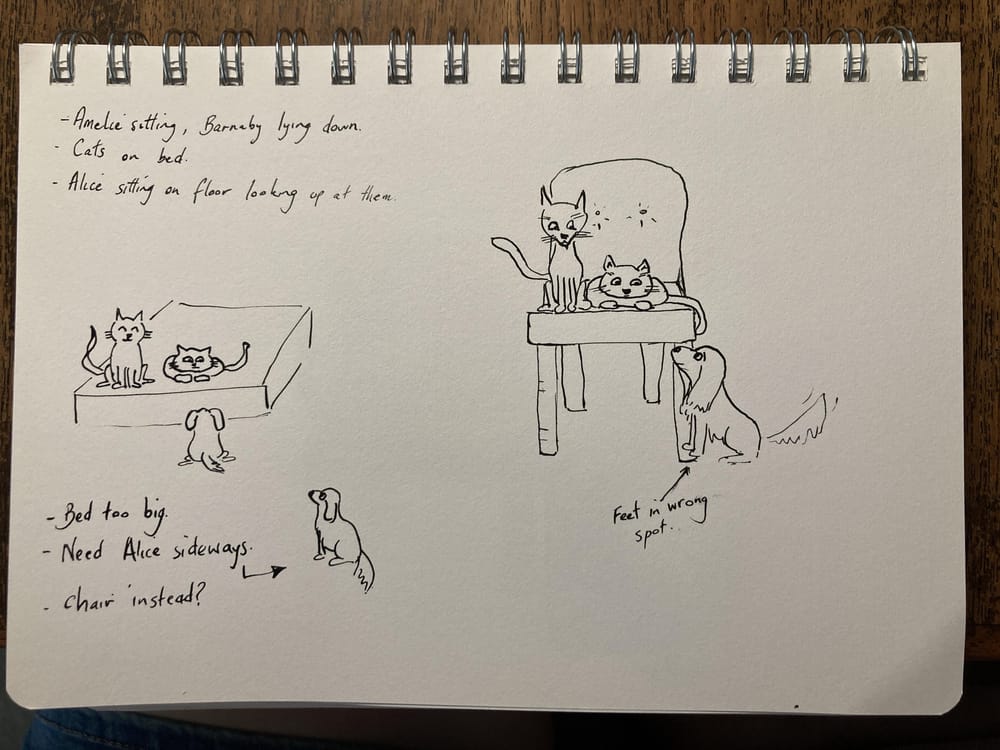 - Amelie sitting, Barnaby lying down.
- Cats on bed.
- Alice sitting on floor looking up at them.
- Bed too big.
- Need Alice sideways.
- Chair instead?
Feet in wrong
spot..